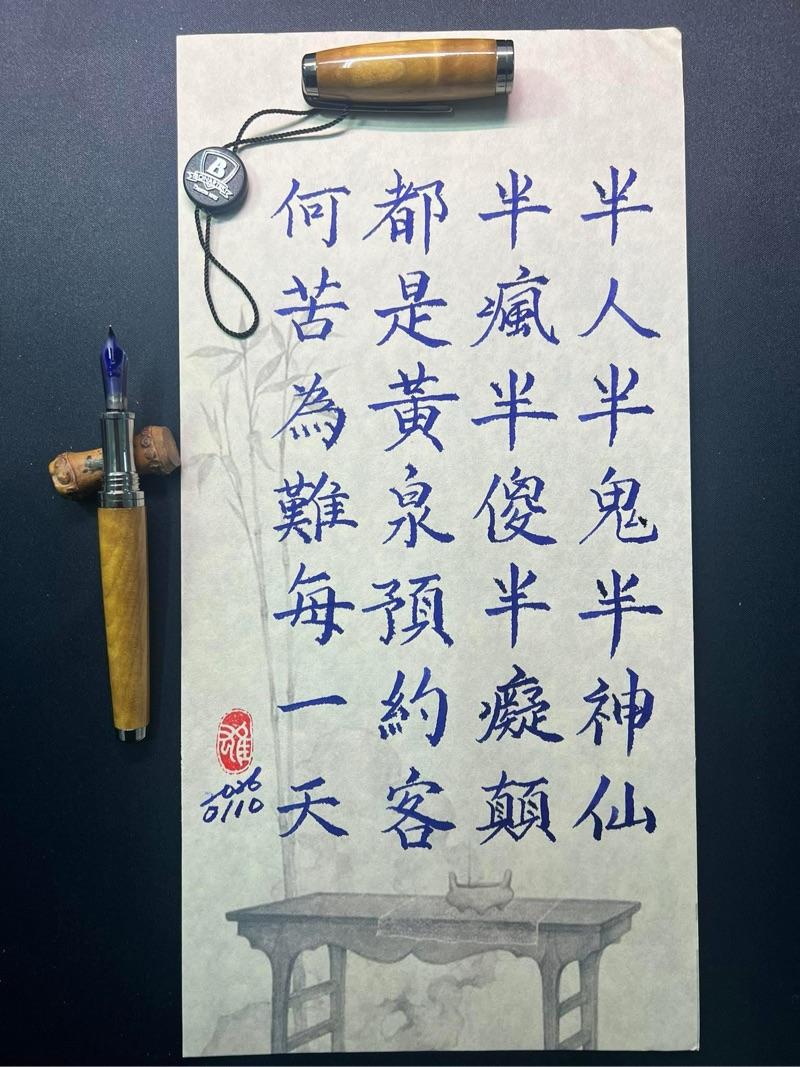 半人半鬼半神仙
半瘋半傻半癡顛
都是黃泉預約客
何苦為難每一天
2026
0110
B